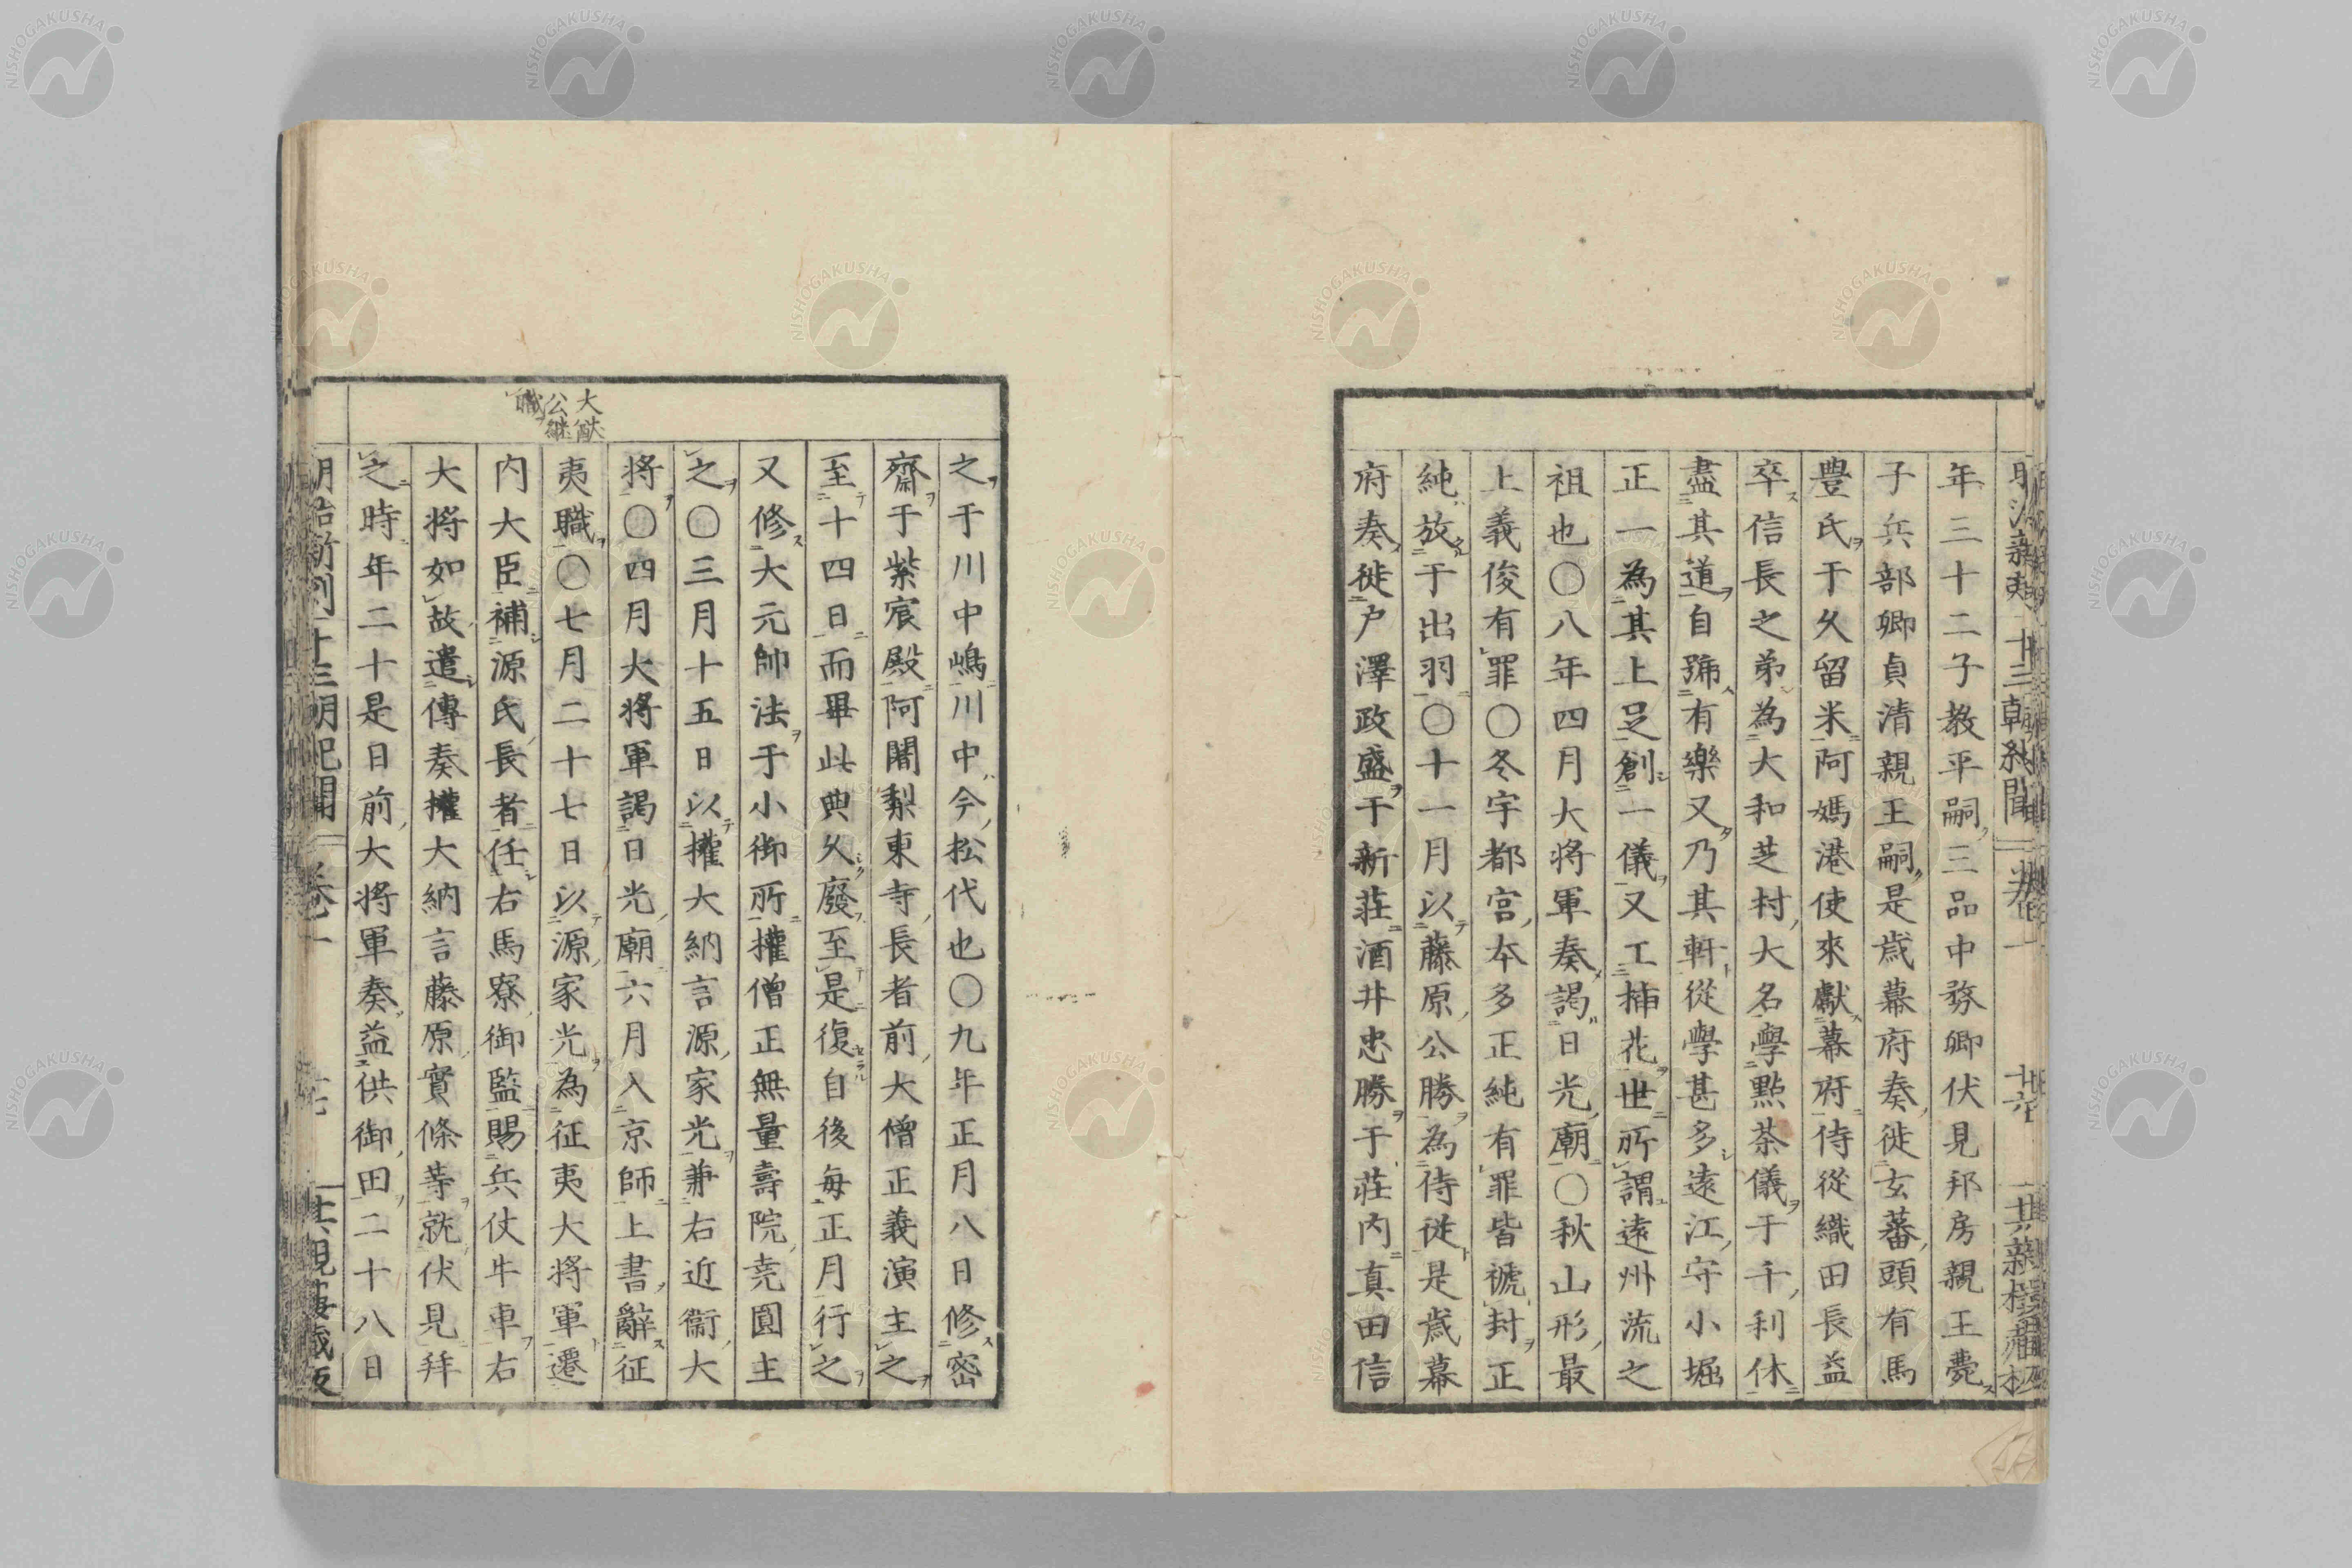 年三十二子教平嗣三品中務卿伏見邦房親王薨
子兵部卿貞清親王嗣是歳幕府奏徙玄蕃頭有馬
豊氏于久留米阿媽港使來獻幕府侍從織田長益
卒信長之弟為大和芝村大名學點茶儀于千利休
盡其道自號有樂又乃其軒從學甚多遠江守小堀
正一為其上足創一儀又工挿花世所謂遠州流之
祖也〇八年四月大將軍奏謁日光廟〇秋山形最
上義俊有罪〇冬宇都宮本多正純有罪皆褫封正
純放于出羽〇十一月以藤原公勝為侍從是歳幕
府奏徙戸澤政盛于新莊酒井忠勝于莊内真田信
之于川中嶋川中今松代也〇九年正月八日修密
齋于紫宸殿阿闍梨東寺長者前大僧正義演主之
至十四日而畢此典久廢至是復自後毎正月行之
又修大元帥法于小御所權僧正無量壽院堯圓主
之〇三月十五日以權大納言源家光兼右近衞大
將〇四月大將軍謁日光廟六月入京師上書辭征
大猷
公継
職
夷職〇七月二十七日以源家光為征夷大將軍遷
内大臣補源氏長者任右馬寮御監賜兵仗牛車右
大將如故遣傳奏權大納言藤原實條等就伏見拜
之時年二十是日前大將軍奏益供御田二十八日